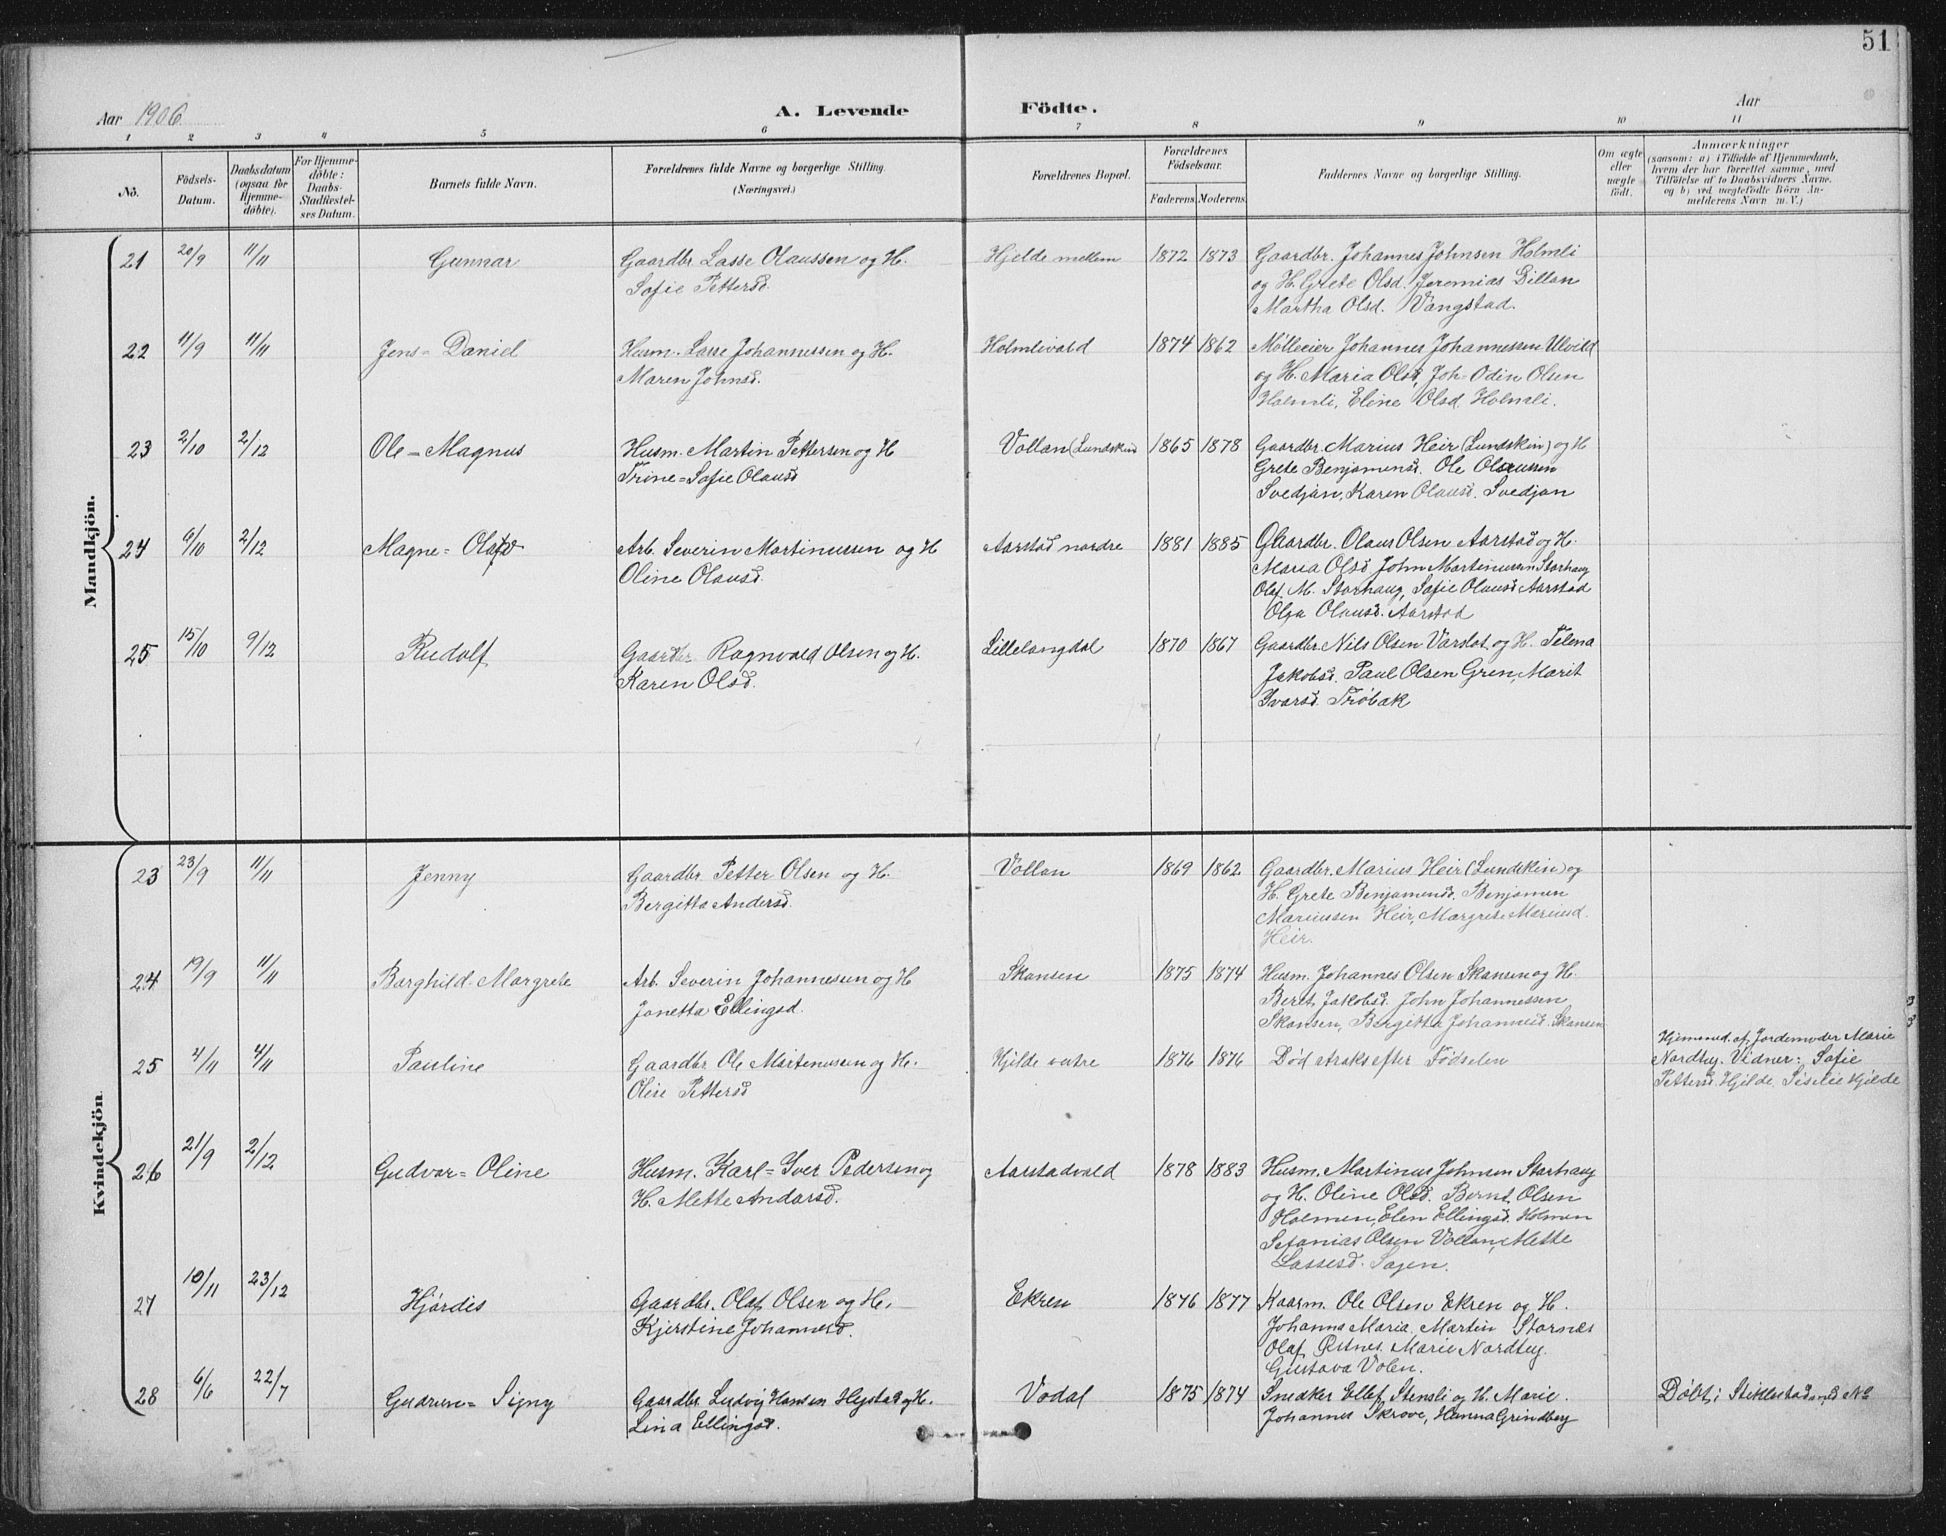 51
Aar 1906
A. Levende Födte.
Aar
1 2 3 4 5 6 7 8 9 10 11
No.
Födsels-
Datum.
Daabsdatum
(ogsaa for
Hjemme-
döbte).
For Hjemme-
döbte:
Daabs-
Stadfæstel-
ses Datum.
Barnets fulde Navn.
Forældrenes fulde Navne og borgerlige Stilling.
(Næringsvei.)
Forældrenes Bopæl.
Forældrenes
Födselsaar.
Faderens. Moderens.
Faddernes Navne og borgerlige Stilling.
Om ægte
eller
uægte
födt.
Anmærkninger
(saasom: a) i Tilfælde af Hjemmedaab,
hvem der har forrettet samme, med
Tilföielse af to Daabsvidners Navne.
og b) ved uægtefödte Börn An-
melderens Navn m. V.)
Mandkjön.
21 20/9 11/11 Gunnar Gaardbr. Lasse Olaussen og H. Hjelde mellem 1872 1873 Gaardbr. Johannes Johnsen Holmli
Sofie Pettersd. og H. Grete Olsd. Jeremias Dillan
Martha Olsd. Vangstad.
22 11/9 11/11 Jens-Daniel Husm. Lasse Johannessen og H. Holmlivald 1874 1862 Mølleeier Johannes Johannessen Ulvild
Maren Johnsd. og H. Maria Olsd, Joh-Odin Olsen
Holmli, Eline Olsd. Holmli.
23 2/10 2/12 Ole-Magnus Husm. Martin Pettersen og H Vollan (Lundskin 1865 1878 Gaardbr. Marius Heir (Lundskin) og H
Trine-Sofie Olausd Grete Benjaminsd. Ole Olaussen
Svedjan, Karen Olausd. Svedjan
24 6/10 2/12 Magne-Olaf Arb. Severin Martinussen og H Aarstad nordre 1881 1885 Gaardbr. Olaus Olsen Aarstad og H.
Oline Olausd. Maria Olsd John Martinussen Storhaug
Olaf M. Storhaug, Sofie Olausd Aarstad
Olga Olausd. Aarstad
25 15/10 9/12 Rudolf Gaardbr Ragnvald Olsen og H. Lillelangdal 1870 1867 Gaardbr Nils Olsen Varslot og H. Telena
Karen Olsd. Jakobsd. Paul Olsen Gren, Marit
Ivarsd. Trøbak
Kvindekjön.
23 23/9 11/11 Jenny Gaardbr Petter Olsen og H. Vollan 1869 1862 Gaardbr. Marius Heir (Lundskin) og
Bergitta Andersd. H. Grete Benjaminsd. Benjamin
Mariussen Heir, Margrete Mariusd.
Heir.
24 19/9 11/11 Borghild-Margrete Arb. Severin Johannesen og H Skansen 1875 1874 Husm. Johannes Olsen Skansen og H.
Janetta Ellingsd. Beret Jakobsd. John Johannessen
Skansen, Bergitta Johannesd. Skansen
25 4/11 4/11 Pauline Gaardbr Ole Martinussen og H. Hjelde østre 1876 1876 Død straks efter Fødselen Hjemmed. af Jordemoder Marie
Olise Pettersd Nordtug. Vidner: Sofie
Pettersd. Hjelde. Hjelde
26 21/9 2/12 Gudvar-Oline Husm. Karl-Iver Pedersen og Aarstadvald 1878 1883 Husm. Martinus Johnsen Storhaug
H. Mette Andersd. og H. Oline Olsd. Bernt Olsen
Holmen, Elen Ellingsd. Holmen
Sefanias Olsen Vollan, Mette
Lassesd. Sagen.
27 10/11 23/12 Hjørdis Gaardbr. Olaf Olsen og H. Ekren 1876 1877 Kaarm. Ole Olsen Ekren og H.
Kjerstine Johannesd. Johanna Maria. Martin Stornæs
Olaf Østnes. Marie Nordtug.
Gustava Volen.
28 6/6 22/7 Gudrun-Signy Gaardbr. Ludvig Hansen Hegstad og H. Vodal 1875 1874 Snedker Ellef Stensli og H. Marie. Døbt i Stiklestad
Lina Ellingsd. Johannes Skrove, Hanna Grindberg